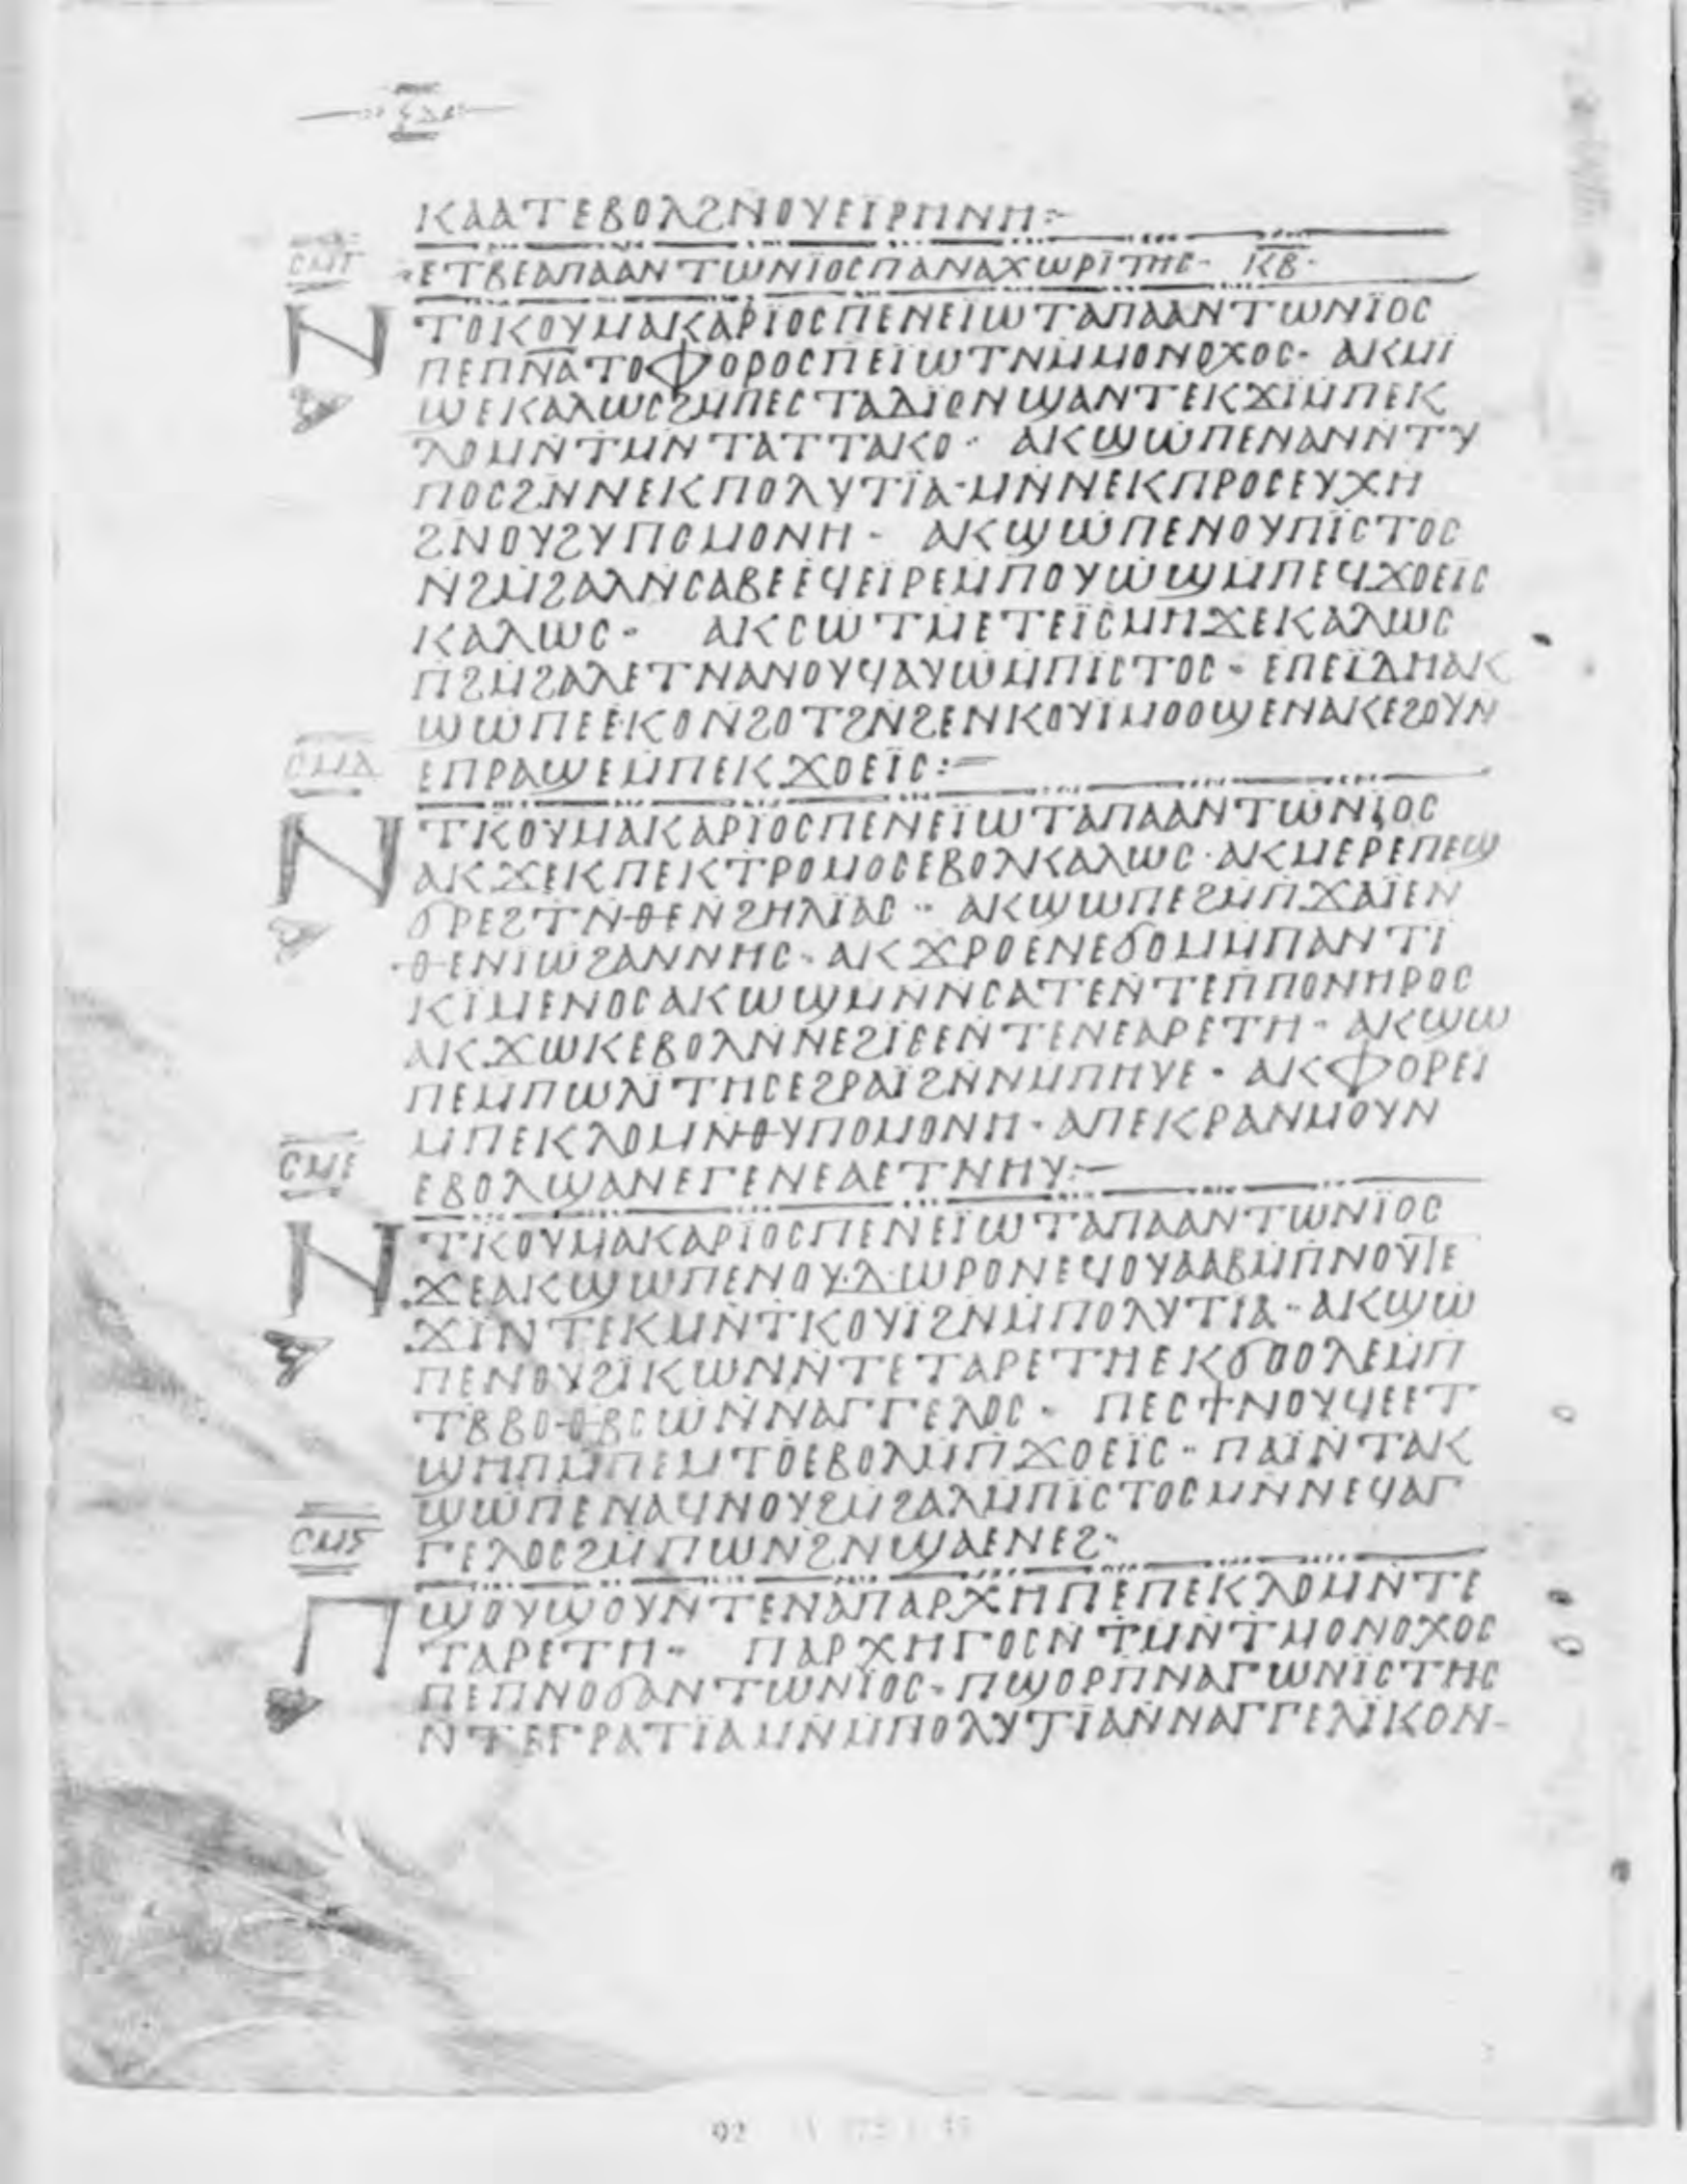 ϤΔ
ⲔⲀⲀⲦⲈⲂⲞⲖϨⲚⲞⲨⲈⲒⲢⲎⲚⲎ:–
ⲤⲘⲄ
ⲈⲦⲂⲈⲀⲠⲀⲀⲚⲦⲰⲚⲒⲞⲤⲠⲀⲚⲀⲬⲰⲢⲒⲦⲎⲤ· ⲔⲂ·
ⲚⲦⲞⲔⲞⲨⲘⲀⲔⲀⲢⲒⲞⲤⲠⲈⲚⲈⲒⲰⲦⲀⲠⲀⲀⲚⲦⲰⲚⲒⲞⲤ
ⲠⲈⲠⲚⲀⲦⲞⲪⲞⲢⲞⲤⲠⲈⲒⲰⲦⲚⲘⲘⲞⲚⲞⲬⲞⲤ· ⲀⲔⲘⲒ
ϢⲈⲔⲀⲖⲰⲤϨⲘⲠⲈⲤⲦⲀⲆⲒⲞⲚϢⲀⲚⲦⲈⲔϪⲒⲘⲠⲈⲔ
ⲖⲞⲘⲚⲦⲘⲚⲦⲀⲦⲦⲀⲔⲞ· ⲀⲔϢⲰⲠⲈⲚⲀⲚⲚⲦⲨ
ⲠⲞⲤϨⲚⲚⲈⲔⲠⲞⲖⲨⲦⲒⲀ·ⲘⲚⲚⲈⲔⲠⲢⲞⲤⲈⲨⲬⲎ
ϨⲚⲞⲨϨⲨⲠⲞⲘⲞⲚⲎ· ⲀⲔϢⲰⲠⲈⲚⲞⲨⲠⲒⲤⲦⲞⲤ
ⲚϨⲘϨⲀⲖⲚⲤⲀⲂⲈⲈϤⲈⲒⲢⲈⲘⲠⲞⲨⲰϢⲘⲠⲈϤϪⲞⲈⲒⲤ
ⲔⲀⲖⲰⲤ· ⲀⲔⲤⲰⲦⲘⲈⲦⲈⲒⲤⲘⲎϪⲈⲔⲀⲖⲰⲤ
ⲠϨⲘϨⲀⲖⲈⲦⲚⲀⲚⲞⲨϤⲀⲨⲰⲘⲠⲒⲤⲦⲞⲤ· ⲈⲠⲈⲒⲆⲎⲀⲔ
ϢⲰⲠⲈⲈⲔⲞⲚϨⲞⲦϨⲚϨⲈⲚⲔⲞⲨⲒⲘⲞⲞϢⲈⲚⲀⲔⲈϨⲞⲨⲚ
ⲤⲘⲆ
ⲈⲠⲢⲀϢⲈⲘⲠⲈⲔϪⲞⲈⲒⲤ:–
ⲚⲦⲔⲞⲨⲘⲀⲔⲀⲢⲒⲞⲤⲠⲈⲚⲈⲒⲰⲦⲀⲠⲀⲀⲚⲦⲰⲚⲒⲞⲤ
ⲀⲔϪⲈⲔⲠⲈⲔⲦⲢⲞⲘⲞⲤⲈⲂⲞⲖⲔⲀⲖⲰⲤ·ⲀⲔⲘⲈⲢⲈⲠⲈϢ
ϬⲢⲈϨⲦⲚⲐⲈⲚϨⲎⲖⲒⲀⲤ·· ⲀⲔϢⲰⲠⲈϨⲘⲠϪⲀⲒⲈⲚ
ⲐⲈⲚⲒⲰϨⲀⲚⲚⲎⲤ·ⲀⲔϪⲢⲞⲈⲚⲈϬⲞⲘⲘⲠⲀⲚⲦⲒ
ⲔⲒⲘⲈⲚⲞⲤⲀⲔⲰϢⲘⲚⲚⲤⲀⲦⲈⲚⲦⲈⲠⲠⲞⲚⲎⲢⲞⲤ
ⲀⲔϪⲰⲔⲈⲂⲞⲖⲚⲚⲈϨⲒⲈⲈⲚⲦⲈⲚⲈⲀⲢⲈⲦⲎ· ⲀⲔϢⲰ
ⲠⲈⲘⲠⲰⲖⲒⲦⲎⲤⲈϨⲢⲀⲒϨⲚⲚⲘⲠⲎⲨⲈ· ⲀⲔⲪⲞⲢⲈⲒ
ⲘⲠⲈⲔⲖⲞⲘⲚⲐⲨⲠⲞⲘⲞⲚⲎ·ⲀⲠⲈⲔⲢⲀⲚⲘⲞⲨⲚ
ⲤⲘⲈ
ⲈⲂⲞⲖϢⲀⲚⲈⲄⲈⲚⲈⲀⲈⲦⲚⲎⲨ:–
ⲚⲦⲔⲞⲨⲘⲀⲔⲀⲢⲒⲞⲤⲠⲈⲚⲈⲒⲰⲦⲀⲠⲀⲀⲚⲦⲰⲚⲒⲞⲤ
ϪⲈⲀⲔϢⲰⲠⲈⲚⲞⲨ·Ⲇ·ⲰⲢⲞⲚⲈϤⲞⲨⲀⲀⲂⲘⲠⲚⲞⲨⲦⲈ
ϪⲒⲚⲦⲈⲔⲘⲚⲦⲔⲞⲨⲒϨⲚⲘⲠⲞⲖⲨⲦⲒⲀ·ⲀⲔϢⲰ
ⲠⲈⲚⲞⲨϨⲒⲔⲰⲚⲚⲦⲈⲦⲀⲢⲈⲦⲎⲈⲔϬⲞⲞⲖⲈⲘⲠ
ⲦⲂⲂⲞⲐⲂⲤⲰⲚⲚⲀⲄⲄⲈⲖⲞⲤ· ⲠⲈⲤϮⲚⲞⲨϤⲈⲈⲦ
ϢⲎⲠⲘⲠⲈⲘⲦⲞⲈⲂⲞⲖⲘⲠϪⲞⲈⲒⲤ·· ⲠⲀⲒⲚⲦⲀⲔ
ϢⲰⲠⲈⲚⲀϤⲚⲞⲨϨⲘϨⲀⲖⲘⲠⲒⲤⲦⲞⲤⲘⲚⲚⲈϤⲀⲄ
ⲤⲘⲊ
ⲄⲈⲖⲞⲤϨⲘⲠⲰⲚϨⲚϢⲀⲈⲚⲈϨ··
ⲠϢⲞⲨϢⲞⲨⲚⲦⲈⲚⲀⲠⲀⲢⲬⲎⲠⲈⲠⲈⲔⲖⲞⲘⲚⲦⲈ
ⲦⲀⲢⲈⲦⲎ·· ⲠⲀⲢⲬⲎⲄⲞⲤⲚⲦⲘⲚⲦⲘⲞⲚⲞⲬⲞⲤ
ⲠⲈⲠⲚⲞϬⲀⲚⲦⲰⲚⲒⲞⲤ·ⲠϢⲞⲢⲠⲚⲀⲄⲰⲚⲒⲤⲦⲎⲤ
ⲚⲦⲈⲄⲢⲀⲦⲒⲀⲘⲚⲘⲠⲞⲖⲨⲦⲒⲀⲚⲚⲀⲄⲄⲈⲖⲒⲔⲞⲚ·
92